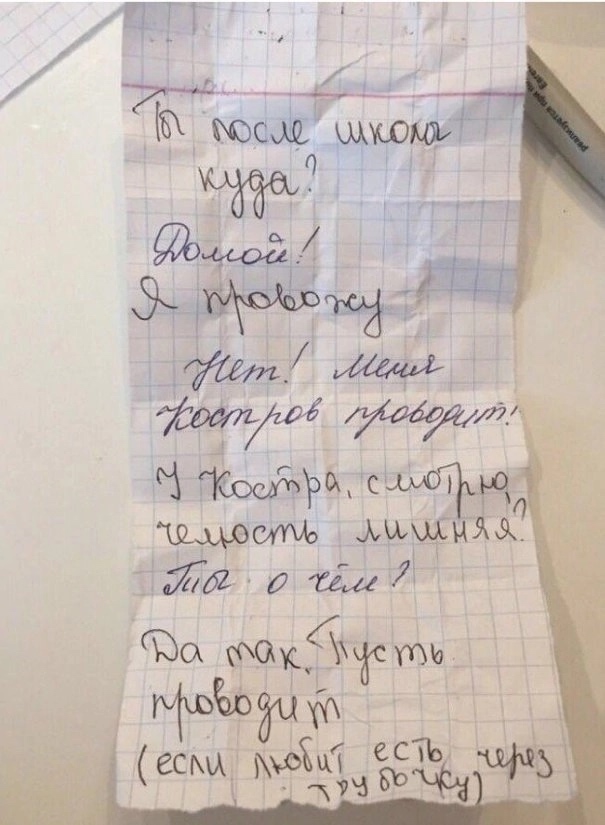 Ты после школы
куда?
Домой!
Я провожу
Нет! Меня
Костров проводит!
У Костра, смотрю,
челюсть лишняя?
Ты о чём?
Да так. Пусть
проводит
(если любит есть через
трубочку)
реализуется при по